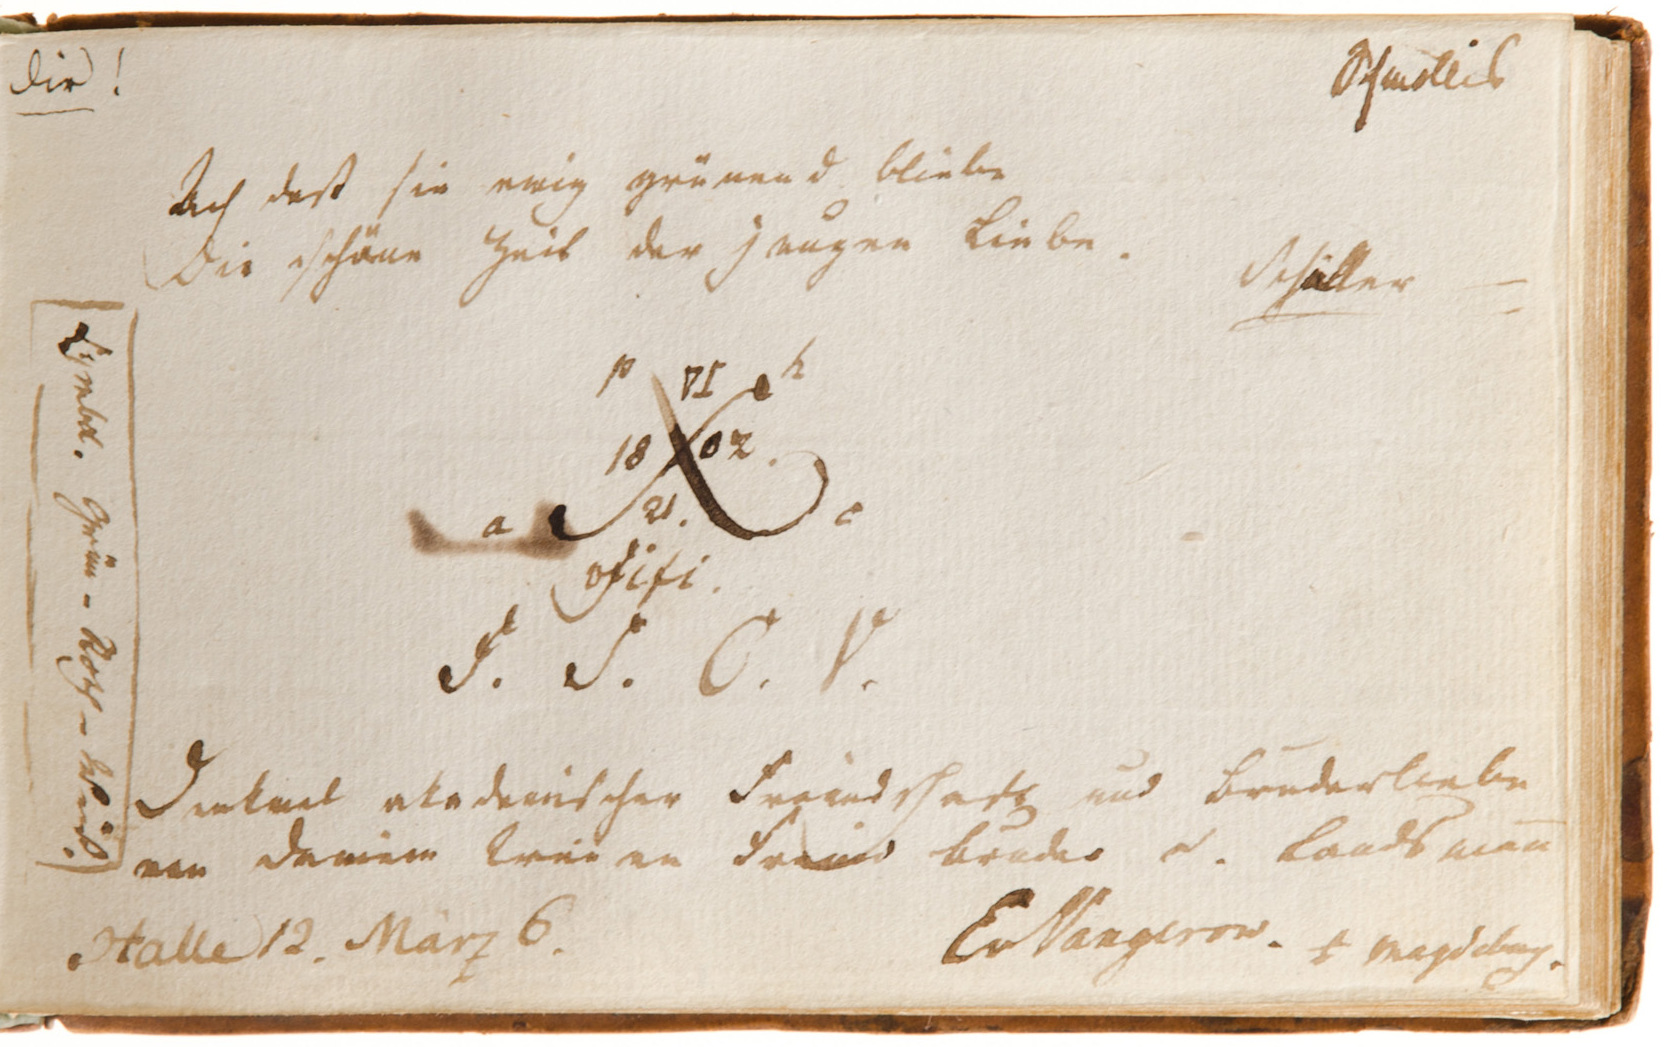 Dir!
Schmollis
Ach daß sie ewig grünend bliebe
Die schöne Zeit der jungen Liebe.
Schiller
p VI h
18 02.
a 21. c
Fifi.
F. F. C. V.
Symbol. Grün - Roth - Weiß.
Denkmal akademischer Freundschaft und Bruderliebe
von Deinem treuen Freund Bruder u. Landsmann
Halle 12. März 6.
Vangerow. Magdeburg.